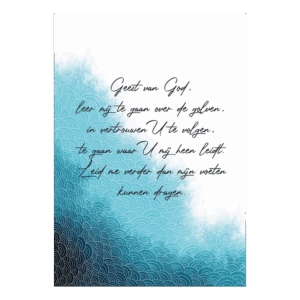 Geest van God,
leer mij te gaan over de golven,
in vertrouwen U te volgen,
te gaan waar U mij heen leidt.
Leid me verder dan mijn voeten
kunnen dragen.